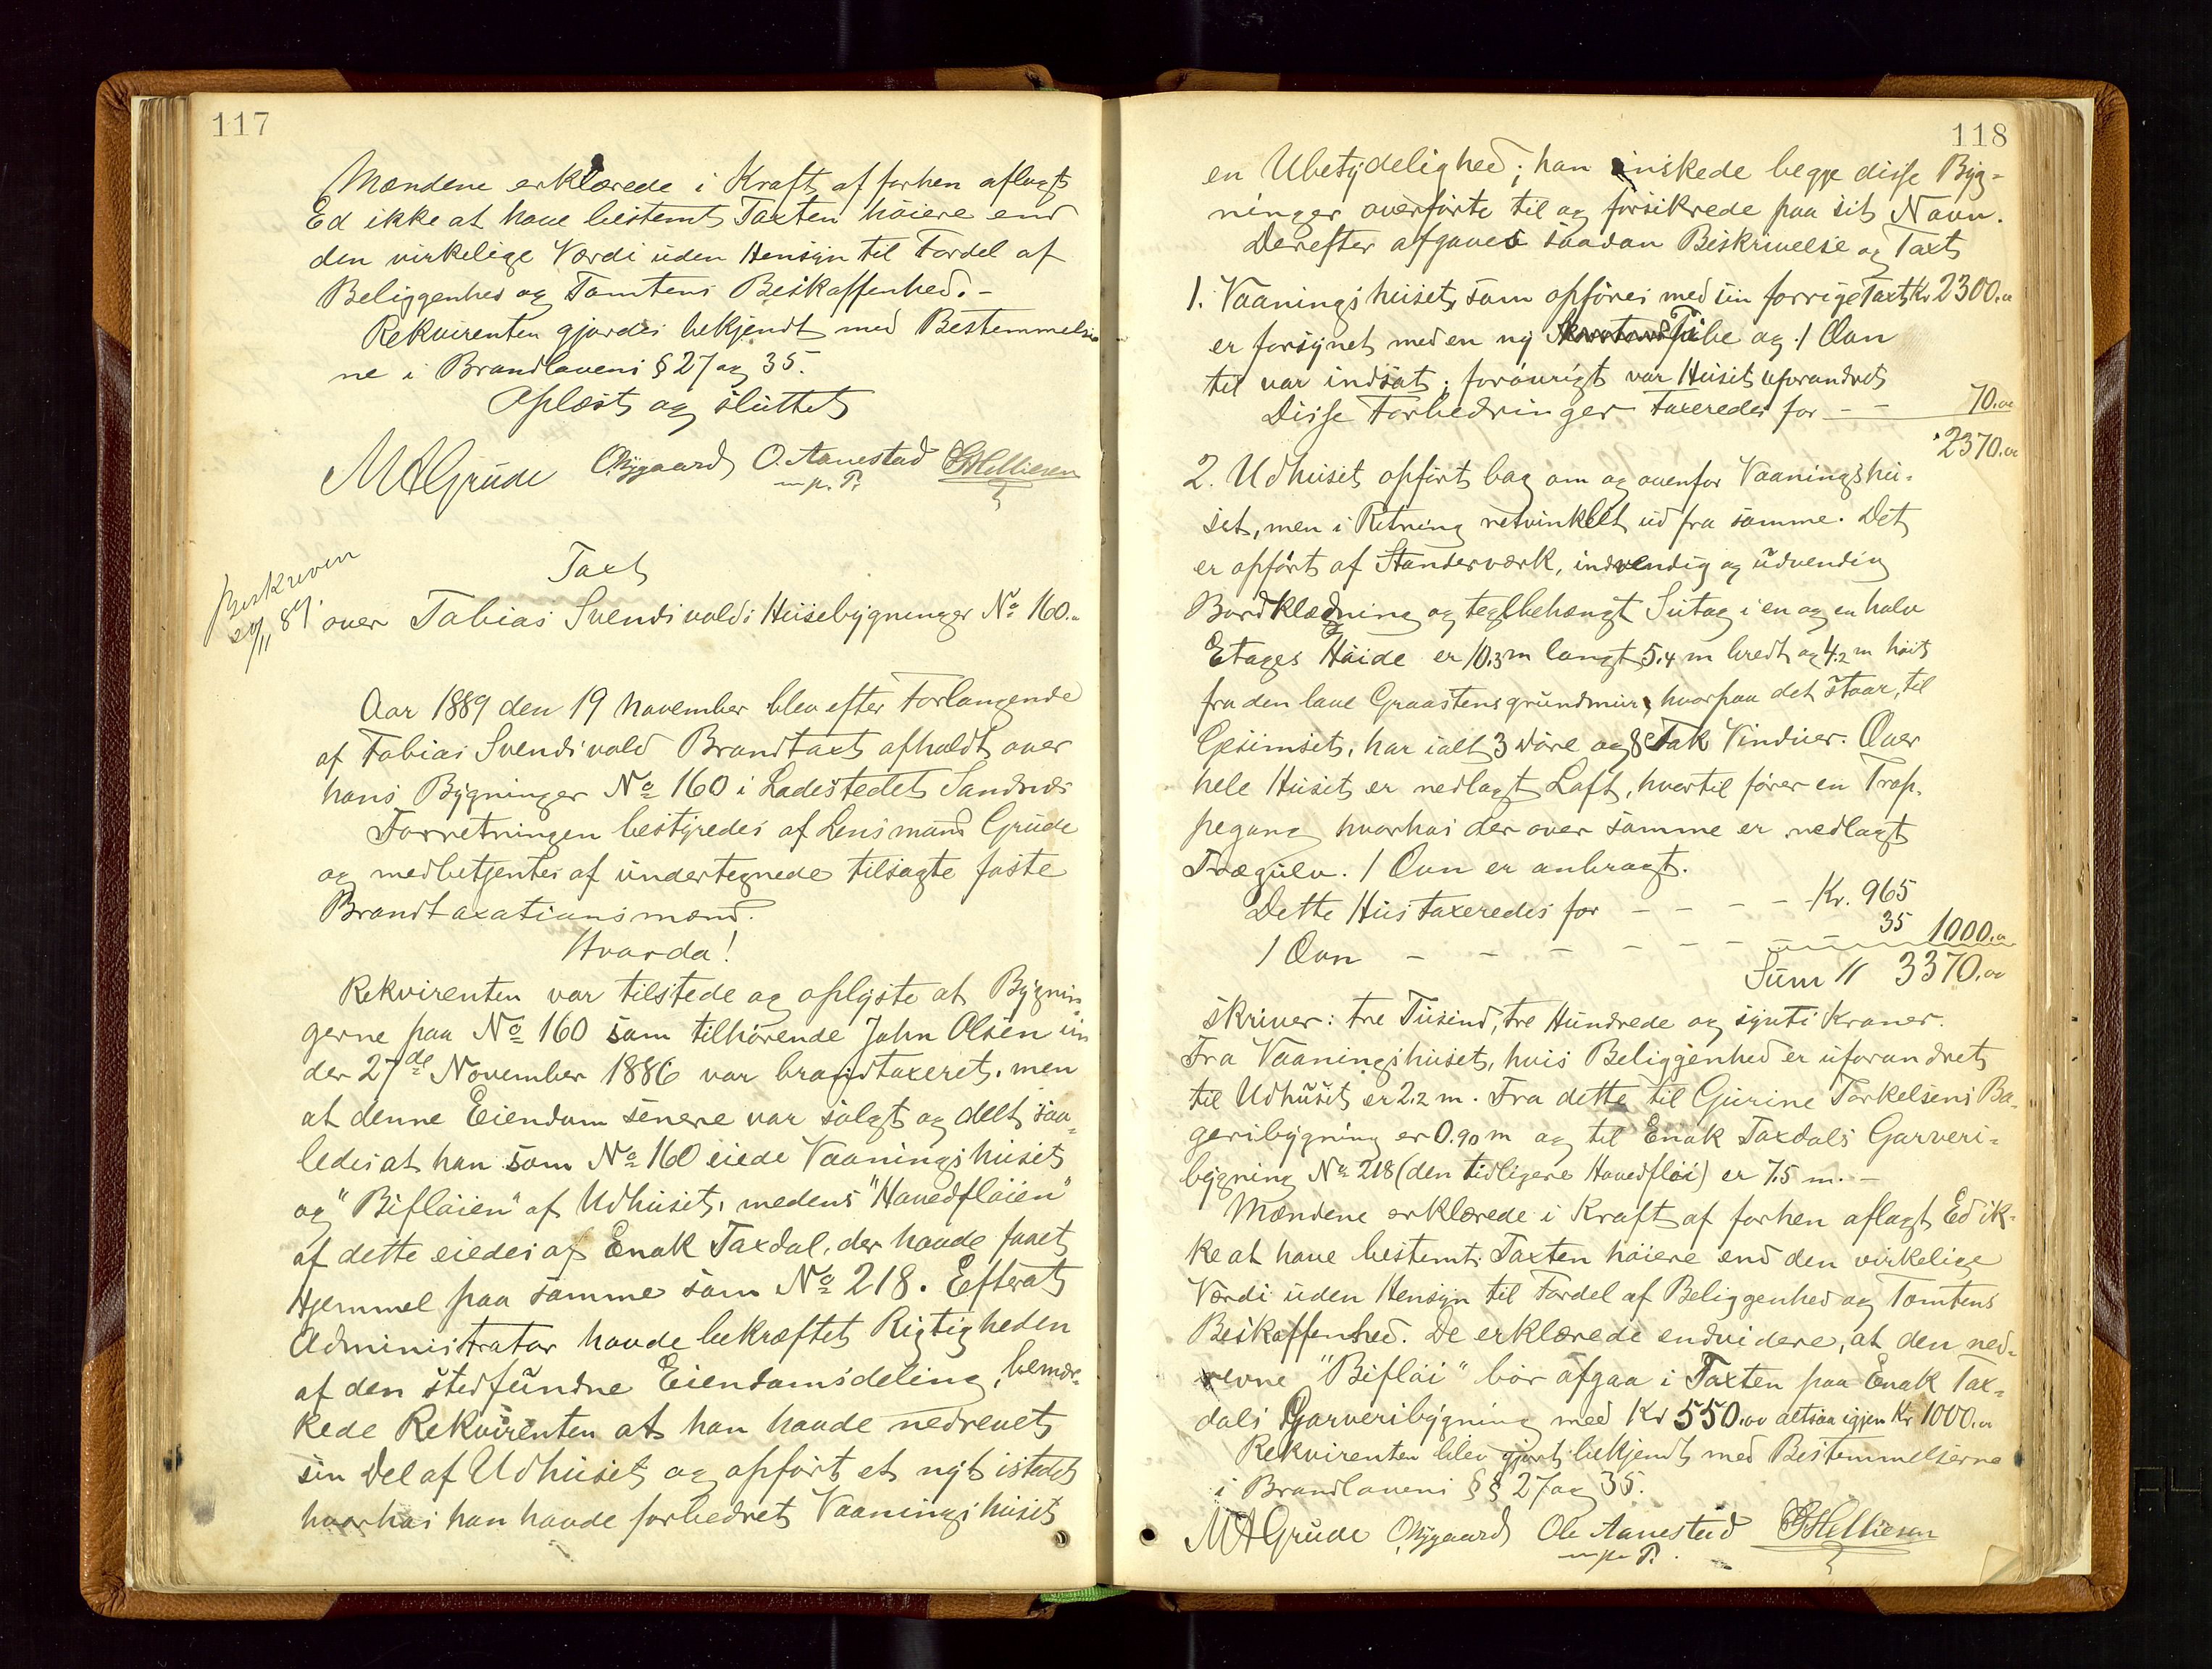 117
Mændene erklærede i Kraft af forhen aflagt
Ed ikke at have bestemt Taxten høiere end
den virkelige Værdi uden Hensyn til Fordel af
Beliggenhed og Tomtens Beskaffenhed. -
Rekvirenten gjordes bekjendt med Bestemmelser
ne i Brandlovens § 27 og 35.
Oplæst og sluttet
M A Grude O. Rygaard O. Aanestad Helliesen
m. p. P.
Beskreven
20/11 89.
Taxt
over Tobias Svendsvolds Husebygninger No 160.
Aar 1889 den 19 November blev efter Forlangende
af Tobias Svendsvold Brandtaxt afholdt over
hans Bygninger No 160 i Ladestedet Sandnes
Forretningen bestyredes af Lensmand Grude
og medbetjentes af undertegnede tilsagte faste
Brandtaxationsmænd.
Hvorda!
Rekvirenten var tilstede og oplyste at Bygnin
gerne paa No 160 som tilhørende John Olsen un
der 27de November 1886 var brandtaxeret, men
at denne Eiendom senere var solgt og delt saa-
ledes at han som No 160 eiede Vaaningshuset
og "Bifløien" af Udhuset, medens "Hovedfløien"
af dette eiedes af Enok Taxdal, der havde faaet
Hjemmel paa samme som No 218. Efterat
Administrator havde bekræftet Rigtigheden
af den stedfundne Eiendomsdeling, bemær-
kede Rekvirenten at han havde nedrevet
sin Del af Udhuset og opført et nyt istedet
hvorhos han havde forbedret Vaaningshuset
118
en Ubetydelighed; han ønskede begge disse Byg-
ninger overførte til og forsikrede paa sit Navn.
Derefter afgaves saadan Beskrivelse og Taxt
1. Vaaningshuset, som opføres med sin forrige Taxt Kr 2300.00
er forsynet med en ny Pibe og 1 Ovn
til var indsat; forøvrigt var Huset uforandret
Disse Forbedringer taxeredes for - - 70.00
2370.00
2. Udhuset opført bag om og ovenfor Vaaningshu-
set, men i Retning retvinklet ud fra samme. Det
er opført af Standerværk, indvendig og udvendig
Bordklædning og teglbehængt Sutag i en og en halv
Etages Høide er 10.3 m langt 5.4 m bredt og 4.2 m høit
fra den lave Graastensgrundmur, hvorpaa det staar, til
Gesimset, har ialt 3 Døre og 8 Fak Vinduer. Over
hele Huset er nedlagt Loft, hvortil fører en Trap-
pegang hvorhos der over samme er nedlagt
Trægulv. 1 Ovn er anbragt.
Dette Hus taxeredes for - - - - Kr. 965
1 Ovn - - - - - - - 35 1000.00
Sum " 3370.00
skriver: tre Tusind, tre Hundrede og sytti Kroner.
Fra Vaaningshuset, hvis Beliggenhed er uforandret
til Udhuset er 2.2 m. Fra dette til Gurine Torkelsens Ba-
geribygning er 0.90 m og til Enok Taxdals Garveri-
bygning No 218 (den tidligere Hovedfløi) er 7.5 m. -
Mændene erklærede i Kraft af forhen aflagt Ed ik-
ke at have bestemt Taxten høiere end den virkelige
Værdi uden Hensyn til Fordel af Beliggenhed og Tomtens
Beskaffenhed. De erklærede endvidere, at den ned-
revne "Bifløi" bør afgaa i Taxten paa Enok Tax-
dals Garveribygning med Kr 550.00 altsaa igjen Kr 1000.00
Rekvirenten blev gjort bekjendt med Bestemmelserne
i Brandlovens §§ 27 og 35.
M A Grude O. Rygaard Ole Aanestad Helliesen
m. p. P.